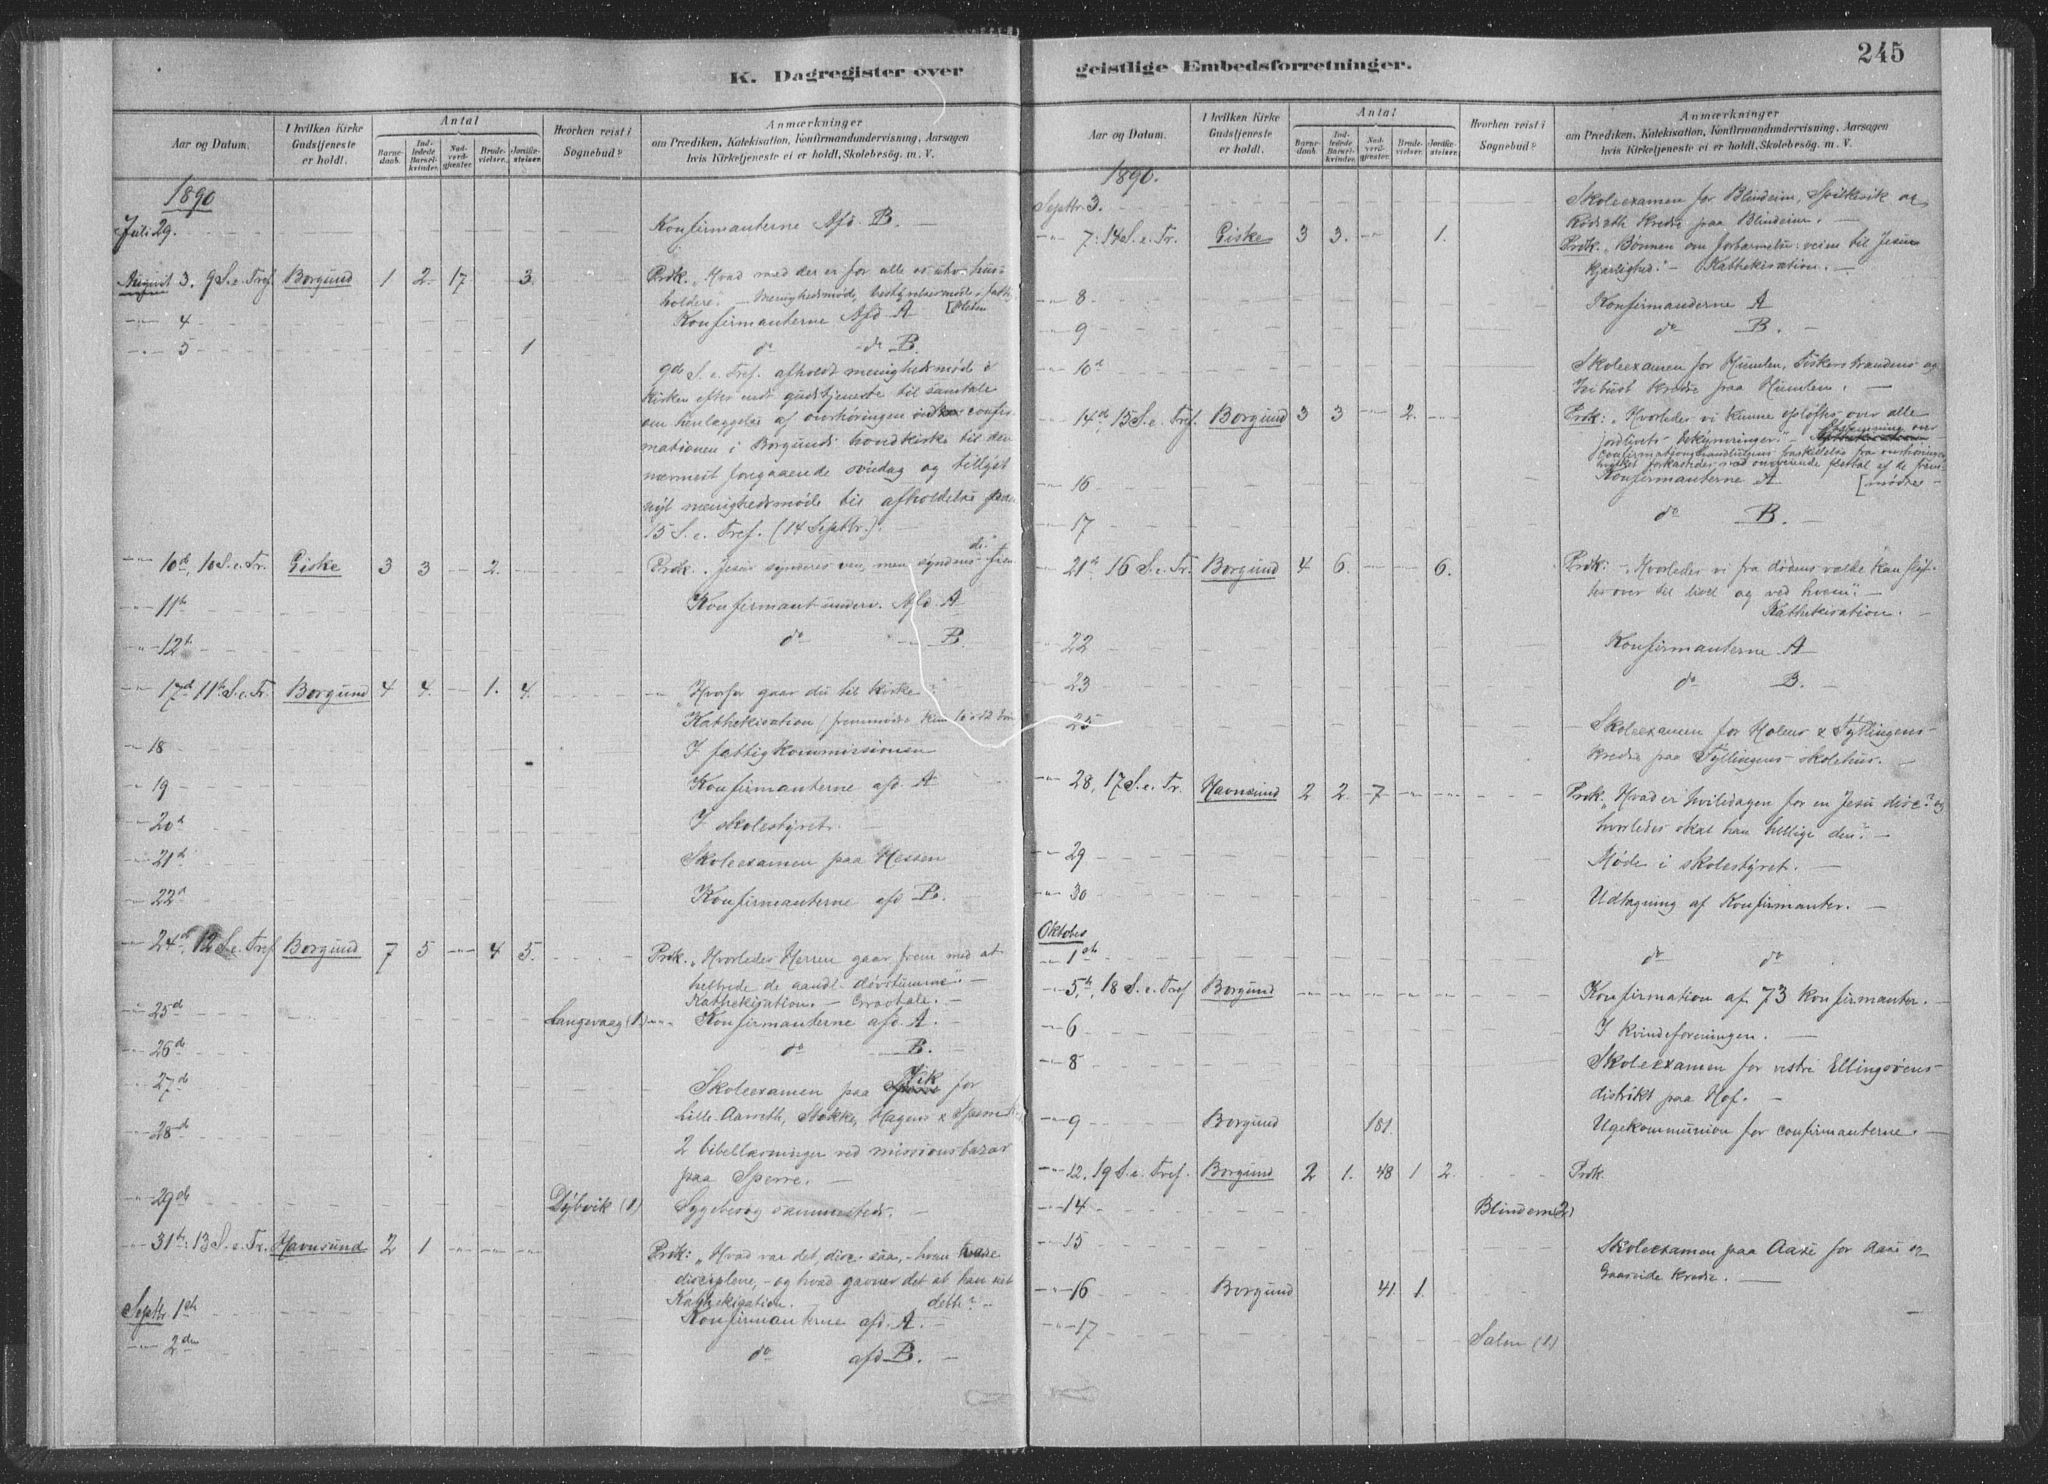 K. Dagregister over
Aar og Datum.
I hvilken Kirke Gudstjeneste er holdt.
Antal
Barnedaab.
Indledede Barselkvinder.
Nadverdgjester.
Brudevielser.
Jordfæstelser.
Hvorhen reist i Sognebud?
Anmærkninger
om Prædiken, Katekisation, Konfirmandundervisning, Aarsagen
hvis Kirketjeneste ei er holdt, Skolebesøg. m. V.
1890
Juli 29. Konfirmanterne Afd B. —
August 3. 9 S. e. Tref. Borgund 1 2 17 3. Prdk. „Hvad med der er for alle
holdere. — Menighedsmøde,
4 Konfirmanterne Afd A
5 1 do do B.
9de S. e. Tref. afholdt menighedsmøde i
kirken efter endt gudstjeneste til samtale
om henlæggelse af overhøringen confir-
mationen i Borgunds hovedkirke til den
nærmest foregaaende søndag og tillyst
nyt menighedsmøde til afholdelse
15 S. e. Tref. (14 Septbr.). —
10d, 10 S. e. Tr. Giske 3 3 2. Prdk. „Jesus synderes ven, men syndens
11te Konfirmantunderv. Afd A
12te do B.
17d 11te S. e. Tr. Borgund 4 4. 1. 4. „Hvorfor gaar du til kirke?
Kathekisation
18 I fattigkommissionen
19 Konfirmanterne afd A
20d I skolestyret.
21de Skoleexamen paa Hessen
22d Konfirmanterne afd B.
24de, 12 S. e. Tref Borgund 7 5 4 5. Prdk. „Hvorledes Herren gaar frem med at
helbrede de aandl. døvstumme“. —
Kathekisation. — Gravtale. —
25d Langevaag (1) Konfirmanterne afd. A. —
26de do B. —
27de Skoleexamen paa Vik for
Lille-Aarseth, Stokke, Hagens & Sperre
28d 2 bibellæsninger ved missionsbazar
paa Sperre. —
29de Dybvik (1) Sygebesøg sammesteds. —
31te, 13 S. e. Tr. Havnsund 2 1 Prdk: „Hvad var det, disc. saa, — hvem vare
disciplene, — og hvad gavner det at han
Kathekisation. dette?
Septbr 1ste Konfirmanterne afd. A. —
2den do afd B. —
geistlige Embedsforretninger.
245
Aar og Datum.
I hvilken Kirke Gudstjeneste er holdt.
Antal
Barnedaab.
Indledede Barselkvinder.
Nadverdgjester.
Brudevielser.
Jordfæstelser.
Hvorhen reist i Sognebud?
Anmærkninger
om Prædiken, Katekisation, Konfirmandundervisning, Aarsagen
hvis Kirketjeneste ei er holdt, Skolebesøg. m. V.
1890.
Septbr. 3. Skoleexamen for Blindeim, Spilkevik og
Rødseth kredse paa Blindeim. —
7: 14 S. e. Tr. Giske 3 3. 1. Prdk. „Bønnen om forbarmelse: veien til Jesu
kjærlighed“. — Kathekisation. —
8 Konfirmanderne A
9 do B. —
10d Skoleexamen for Humlen, Fiskerstrandens og
kreds paa Humlen. —
14de, 15 S. e. Tref. Borgund 3 3 2. Prdk: „Hvorledes vi kunne opløftes over alle
jordlivets bekymringer“. — Afstemning over
confirmationshandlingens fraskillelse fra overhøring
hvilket forkastedes med overveiende flertal af de frem-
[mødte —
16 Konfirmanterne A
17 do B. —
21de 16 S. e. Tr. Borgund 4 6. 6. Prdk: — „Hvorledes vi fra dødens vælde kan flyt-
tes over til livet og ved hvem“. —
Kathekisation. —
22 Konfirmanterne A
23 do B. —
25 Skoleexamen for Holens & Tyllingens
kredse paa Tyllingens skolehus. —
28, 17 S. e. Tr. Havnsund 2 2. 7 Prdk. „Hvad er hviledagen for en Jesu disc? og
hvorledes skal han hellige den“. —
29 Møde i skolestyret. —
30 Udtagning af Konfirmanter. —
Oktober
1ste do do
5te, 18 S. e. Tref Borgund Konfirmation af 73 konfirmanter. —
6 I kvindeforeningen. —
8 Skoleexamen for vestre Ellingsøens
distrikt paa Hof. —
9 Borgund 181. Ugekommunion for confirmanterne. —
12. 19 S. e. Tref. Borgund 2 1. 48 1 2. Prdk.
14 Blindem (2)
15 Skoleexamen paa Aase for Aase og
Gaaseide kredse. —
16 Borgund 41. 1.
17 (1)